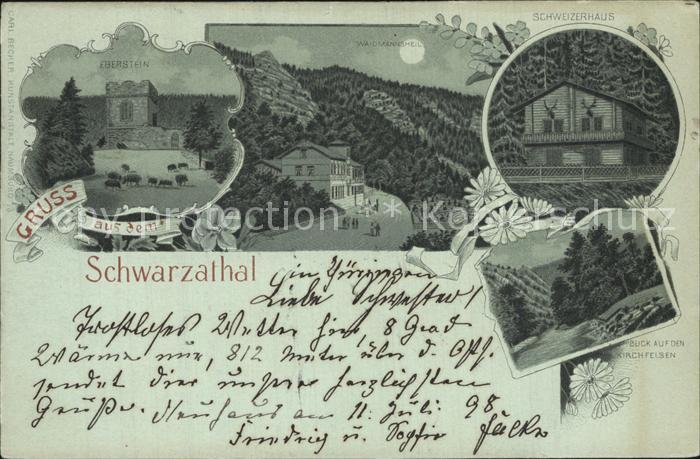 CARL BECKER, KUNSTANSTALT, NAUMBURG
EBERSTEIN
WAIDMANNSHEIL
SCHWEIZERHAUS
GRUSS
aus dem
Schwarzathal
BLICK AUF DEN
KIRCHFELSEN
in Thüringen
Liebe Schwester!
Trostloses Wetter hier, 8 Grad
Wärme nur, 812 Meter über d. Osts.
sendet Dir unsere herzlichsten
Grüße. Neuhaus am 11. Juli. 98
Friedrich u. Sophie